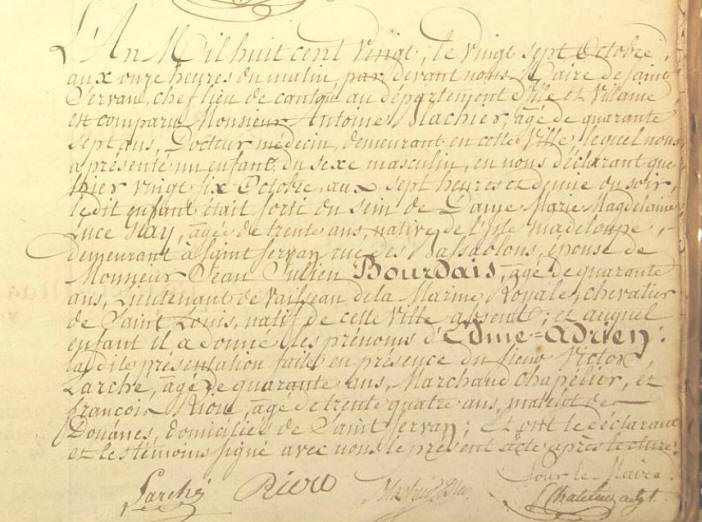 L'An Mil huit cent vingt, le vingt sept Octobre,
aux onze heures du matin, par devant nous Maire de Saint
Servan, chef lieu de canton au département d'Ille et Vilaine
est comparu Monsieur Antoine Machier, agé de quarante
sept ans, Docteur médecin, demeurant en cette Ville, lequel nous
a présenté un enfant du sexe masculin, en nous déclarant que
hier vingt six Octobre, aux sept heures et demie du soir,
ledit enfant était sorti du sein de Dame Marie Magdelaine
Luce Hay, agée de trente ans, native de l'Isle Guadeloupe,
demeurant à Saint Servan rue des Bassablons, épouse de
Monsieur Jean Julien Bourdais, agé de quarante
ans, Lieutenant de Vaisseau de la Marine Royale, chevalier
de Saint Louis, natif de cette Ville absent; et auquel
enfant il a donné les prénoms d'Edme=Adrien:
la dite présentation faite en présence du Sieur Victor
Larché, agé de quarante ans, Marchand Chapélier, et
François Riou, agé de trente quatre ans, matelot des
Douanes, domiciliés de Saint Servan; et ont le déclarant
et les témoins signé avec nous le présent acte après lecture.
Pour le Maire
Larché Riou